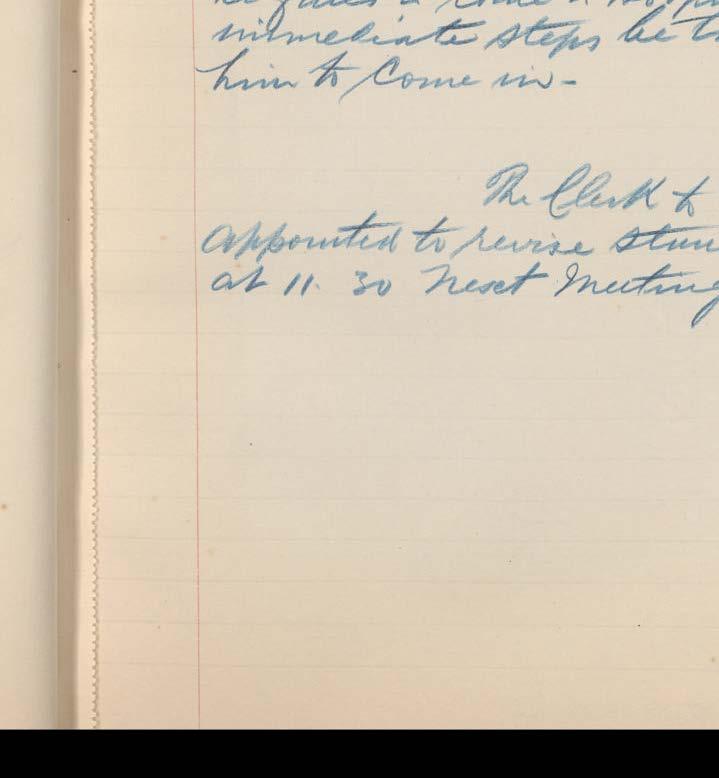 immediate steps be
him to Come in -
The Clerk to
appointed to revise Stan
at 11.30 Next Meeting